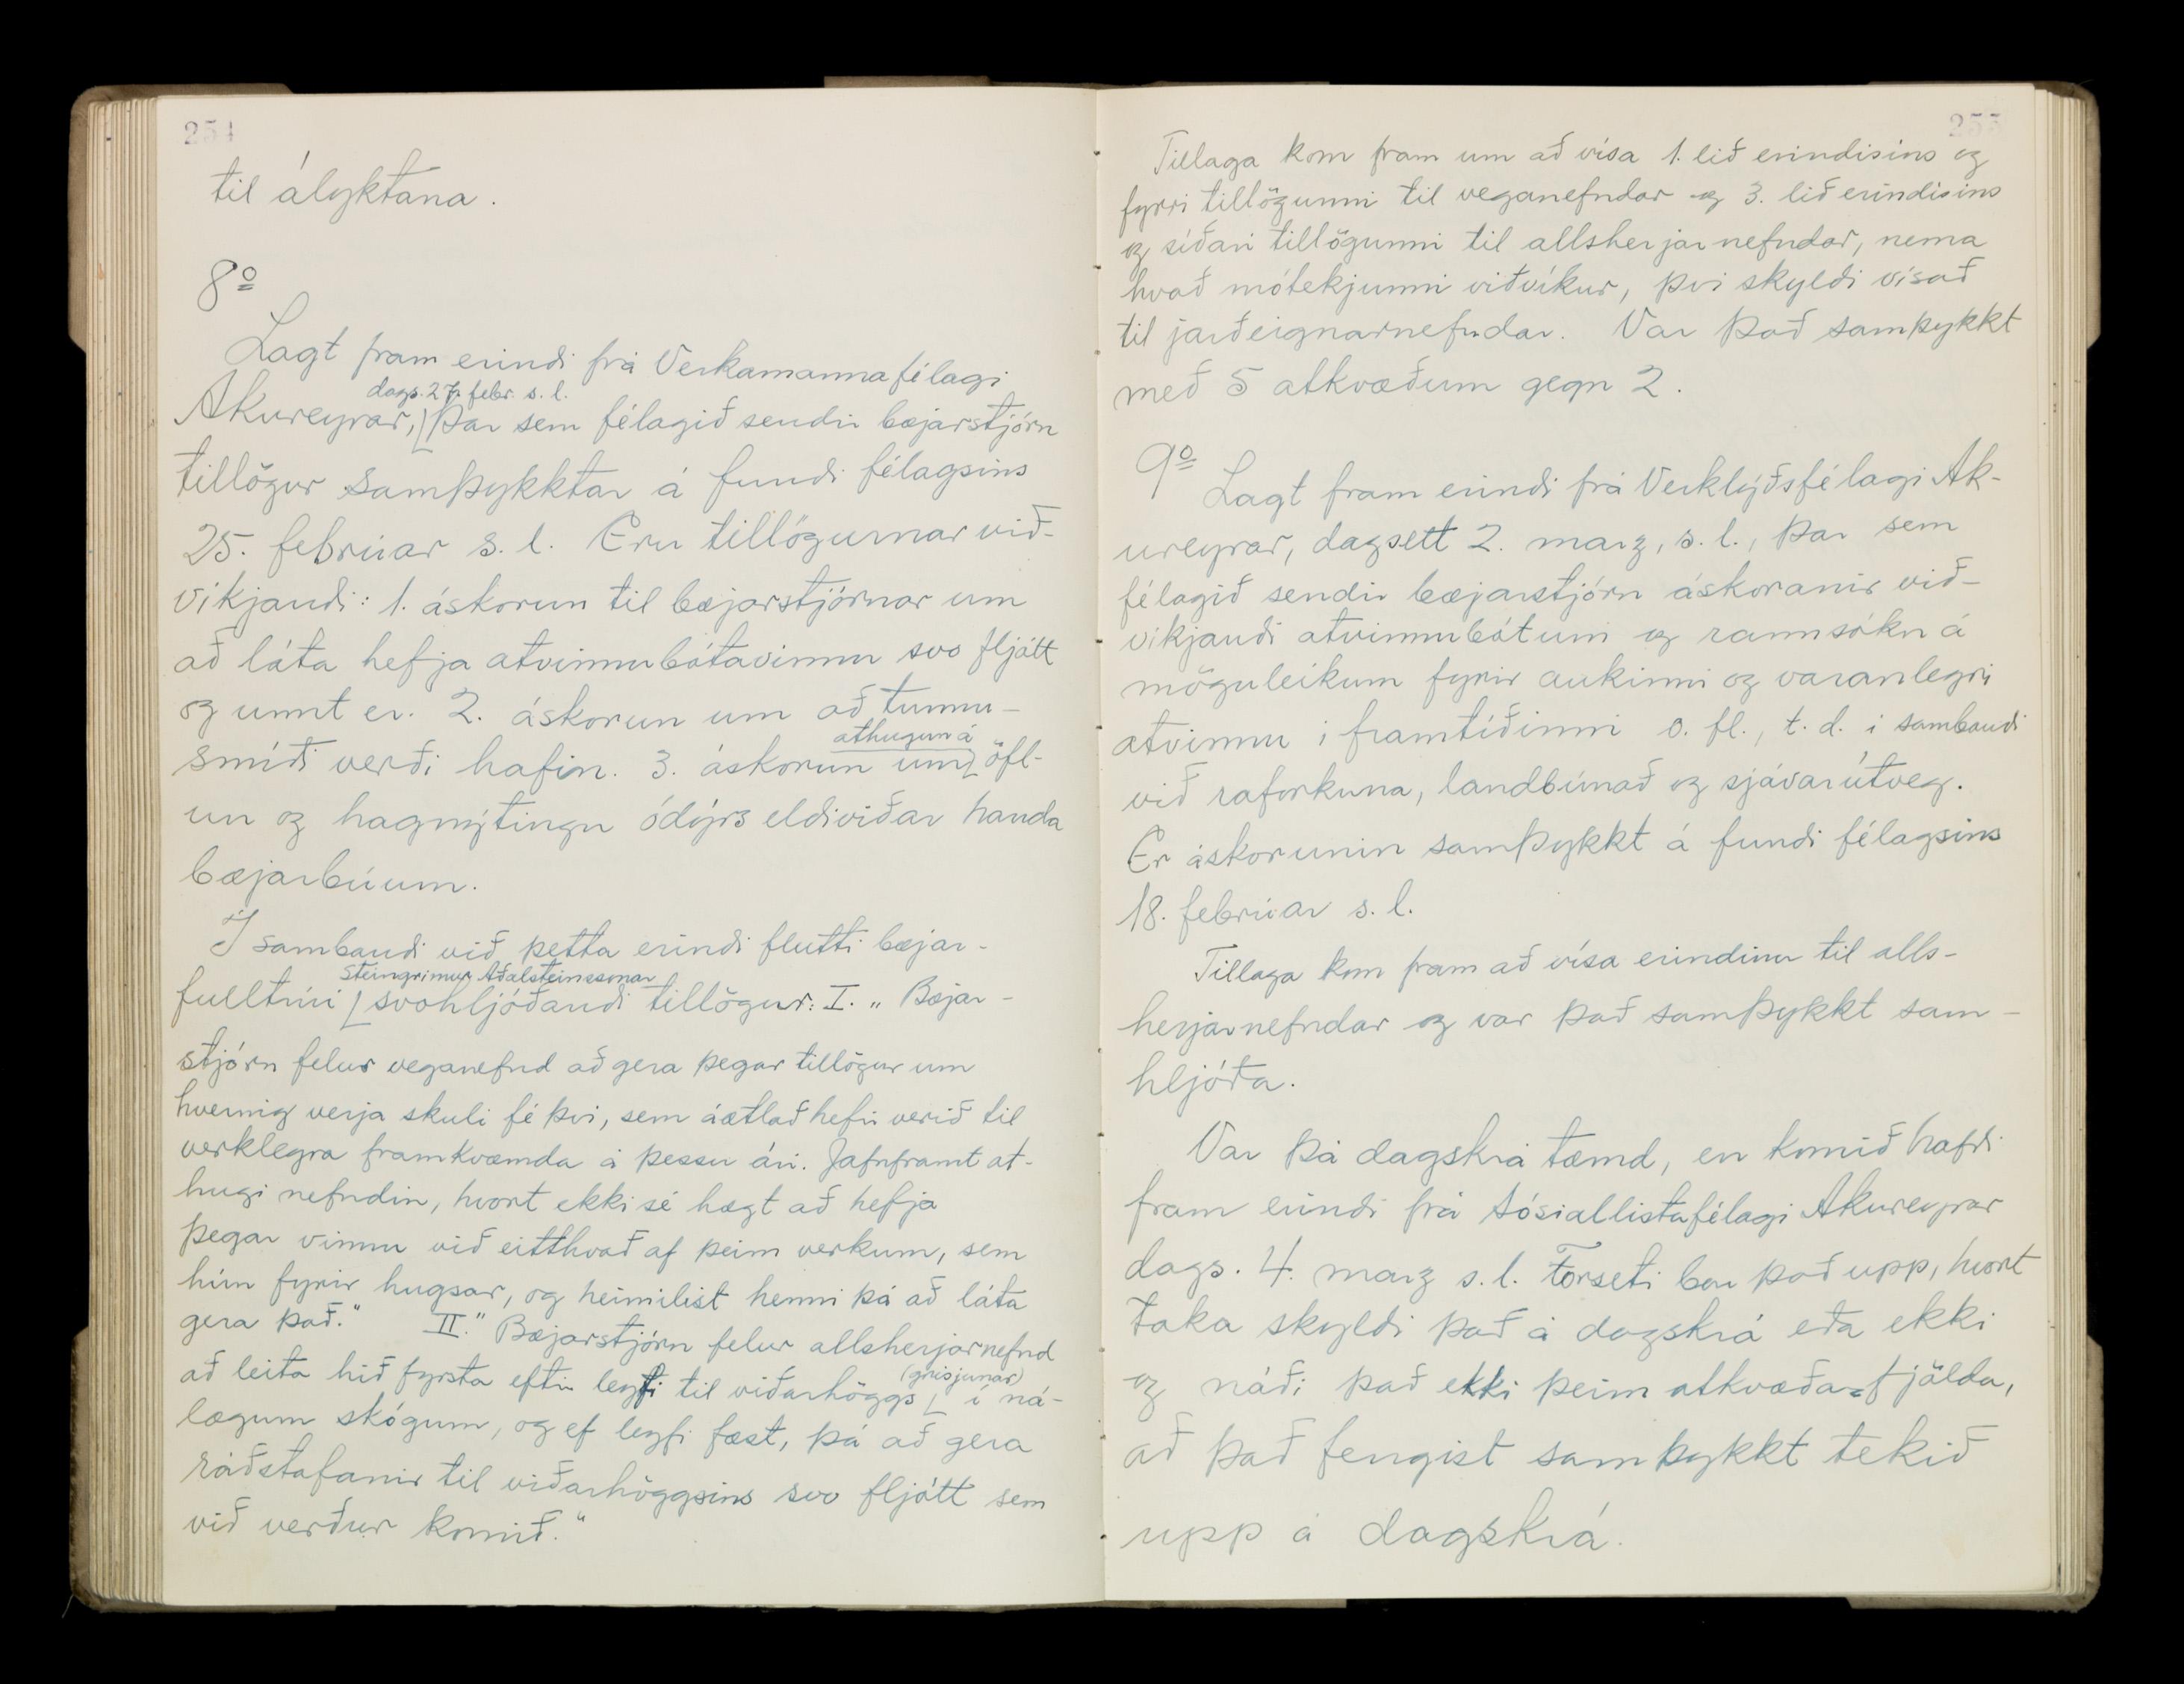 254
til ályktana.
8º
Lagt fram erindi frá Verkamannafélagi
dags. 27. febr. s. l.
Akureyrar, þar sem félagið sendir bæjarstjórn
tillögur samþykktar á fundi félagsins
25. febrúar s. l. Eru tillögurnar við-
víkjandi: 1. áskorun til bæjarstjórnar um
að láta hefja atvinnubótavinnu svo fljótt
og unnt er. 2. áskorun um að tunnu-
athugun á
smíði verði hafin. 3. áskorun um öfl-
un og hagnýtingu ódýrs eldiviðar handa
bæjarbúum.
Í sambandi við þetta erindi flutti bæjar-
Steingrímur Aðalsteinssonar
fulltrúi svohljóðandi tillögur: I. „Bæjar-
stjórn felur veganefnd að gera þegar tillögur um
hvernig verja skuli fé því, sem áætlað hefir verið til
verklegra framkvæmda á þessu ári. Jafnframt at-
hugi nefndin, hvort ekki sé hægt að hefja
þegar vinnu við eitthvað af þeim verkum, sem
hún fyrir hugsar, og heimilist henni þá að láta
gera það.“ II.“ Bæjarstjórn felur allsherjarnefnd
(grisjunar)
að leita hið fyrsta eftir leyfi til viðarhöggs í ná-
lægum skógum, og ef leyfi fæst, þá að gera
ráðstafanir til viðarhöggsins svo fljótt sem
við verður komið.“
255
Tillaga kom fram um að vísa 1. lið erindisins og
fyrri tillögunni til veganefndar og 3. lið erindisins
og síðari tillögunni til allsherjarnefndar, nema
hvað mótekjunni viðvíkur, því skyldi vísað
til jarðeignarnefndar. Var það samþykkt
með 5 atkvæðum gegn 2.
9º
Lagt fram erindi frá Verklýðsfélagi Ak-
ureyrar, dagsett 2. marz, s. l., þar sem
félagið sendir bæjarstjórn áskoranir við-
víkjandi atvinnubótum og rannsókn á
möguleikum fyrir aukinni og varanlegri
atvinnu í framtíðinni o. fl., t. d. í sambandi
við raforkuna, landbúnað og sjávarútveg.
Er áskorunin samþykkt á fundi félagsins
18. febrúar s. l.
Tillaga kom fram að vísa erindinu til alls-
herjarnefndar og var það samþykkt sam-
hljóða.
Var þá dagskrá tæmd, en komið hafði
fram erindi frá Sósiallistafélagi Akureyrar
dags. 4. marz s. l. Forseti bar það upp, hvort
taka skyldi það á dagskrá eða ekki
og náði það ekki þeim atkvæða-fjölda,
að það fengist samþykkt tekið
upp á dagskrá.